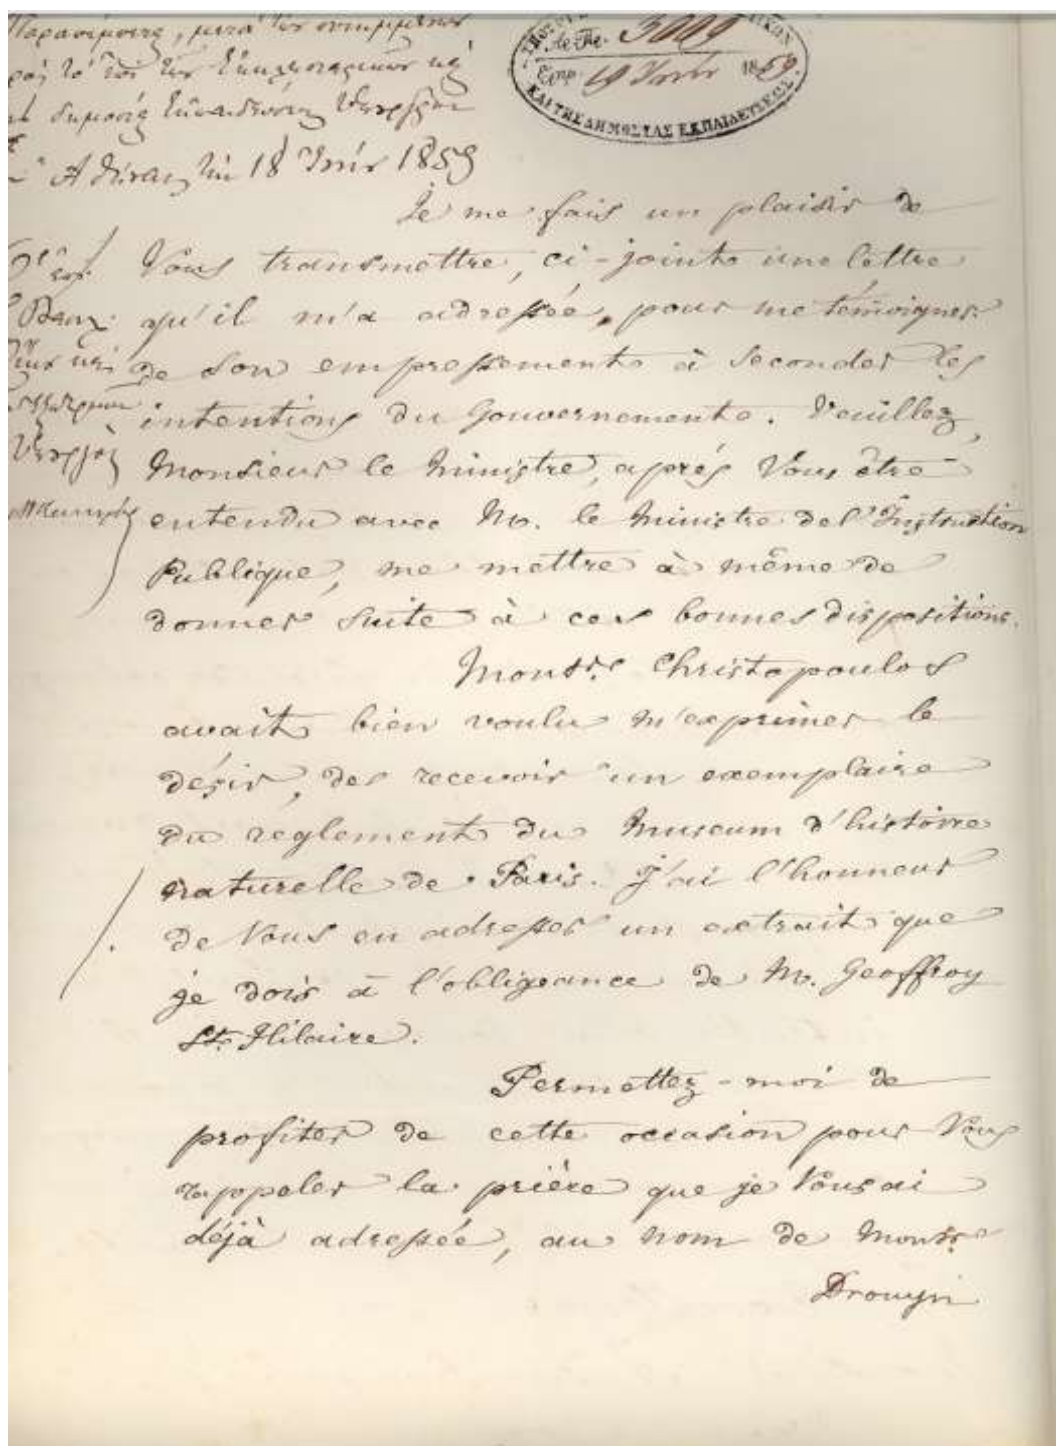 Παραπέμπεται, μετὰ τῶν συνημμένων
τὸ τῶν Ἐκκλησιαστικῶν κὴ
δημοσίας Ἐκπαιδεύσεως Ὑπουργεῖον
Ἀθήναις τὴν 18 Ἰουν 1859
3009
19 Ἰουν 1859
ΚΑΙ ΤΗΣ ΔΗΜΟΣΙΑΣ ΕΚΠΑΙΔΕΥΣΕΩΣ
Je me fais un plaisir de
Vous transmettre, ci-jointe une lettre
qu'il m'a adressée, pour me témoigner
de son empressement à seconder les
intentions du Gouvernement. Veuillez,
Monsieur le Ministre, après Vous être
entendu avec Mr. le Ministre de l'Instruction
Publique, me mettre à même de
donner suite à ces bonnes dispositions.
Monsr. Christopoulos
avait bien voulu m'exprimer le
désir, de recevoir un exemplaire
du reglement du Museum d'histoire
naturelle de Paris. J'ai l'honneur
de Vous en adresser un extrait que
je dois à l'obligeance de Mr. Geoffroy
St. Hilaire.
Permettez-moi de
profiter de cette occasion pour Vous
rappeler la prière que je Vous ai
déjà adressée, au nom de Monsr.
Drouyn